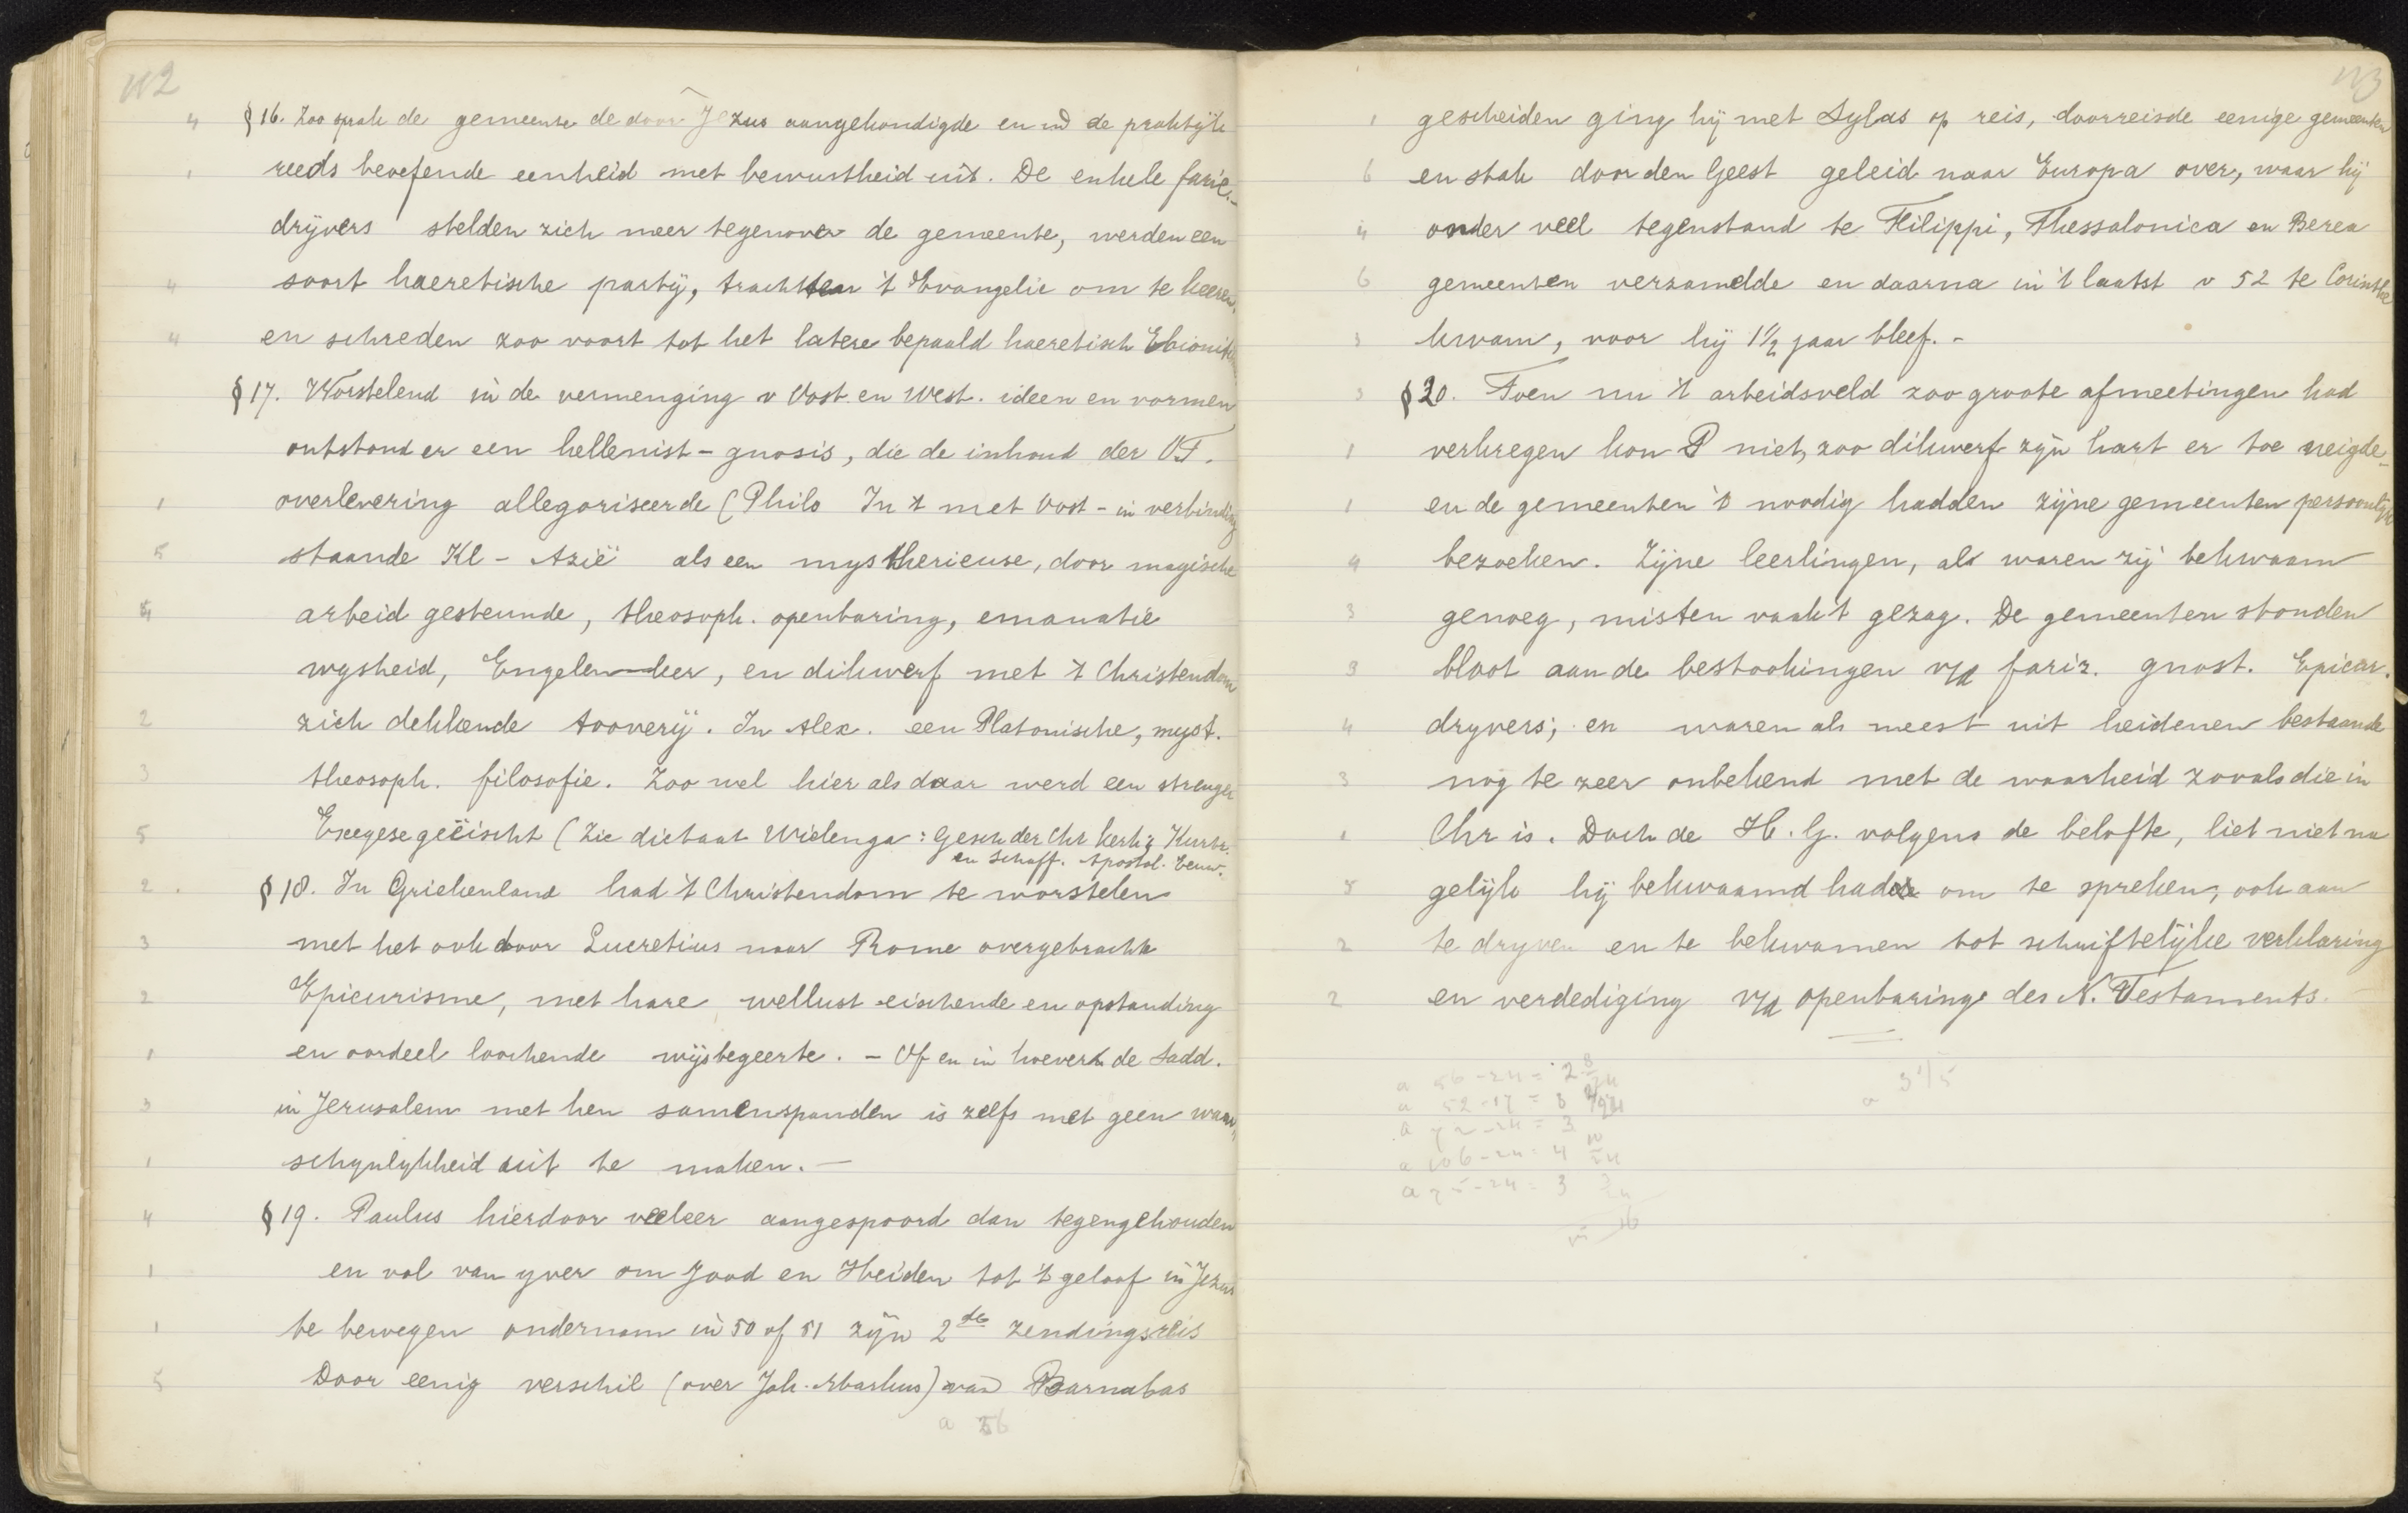 112
§16. Zoo sprak de gemeente de door Jezus aangekondigde en in de praktijk
reeds beoefende eenheid met bewustheid uit. De enkele farie.-
drijvers stelden zich meer tegenover de gemeente, werden een
soort haeretische partij, trachtten 't Evangelie om te keeren,
en schreden zoo voort tot het latere bepaald haeretisch
§17. Worstelend in de vermenging v Oost en West. ideen en vormen
ontstond er een hellenist-gnosis, die de inhoud der OT.
overlevering allegoriseerde (Philo In 't met Oost - in verbinding
staande Kl - Azië als een mystherieuse, door magische
arbeid gesteunde, theosoph. openbaring, emanatie
wysheid, Engelen-leer, en dikwerf met 't Christendom
zich dekkende tooverij. In Alex. een Platonische, myst.
theosoph. filosofie. Zoo wel hier als daar werd een strenger
Exegese geëischt (Zie dictaat Wielenga: Gesch der Chr kerk; Kurtz.
en Schaff. Apostol. Eeuw.
§18. In Griekenland had 't Christendom te worstelen
met het ook door Lucretius naar Rome overgebrachte
Epicurisme, met hare wellust eischende en opstanding
en oordeel loochende wijsbegeerte. - Of en in hoeverre de Sadd.
in Jerusalem met hen samenspanden is zelfs met geen waar,
schynlykheid uit te maken. -
§19. Paulus hierdoor veeleer aangespoord dan tegengehouden
en vol van yver om Jood en Heiden tot 't geloof in Jezus
te bewegen ondernam in 50 of 51 zijn 2de zendingsreis
Door eenig verschil (over Joh. Markus) van Barnabas
a 56
113
gescheiden ging hij met Sylas op reis, doorreisde eenige gemeenten
en stak door den Geest geleid naar Europa over, waar hij
onder veel tegenstand te Filippi, Thessalonica en Berea
gemeenten verzamelde en daarna in 't laatst v 52 te Corinthe
kwam, waar hij 1 1/2 jaar bleef. -
§20. Toen nu 't arbeidsveld zoo groote afmeetingen had
verkregen kon P niet, zoo dikwerf zijn hart er toe neigde
en de gemeenten 't noodig hadden zijne gemeenten persoonlijk
bezoeken. Zijne leerlingen, al waren zij bekwaam
genoeg, misten vaak 't gezag. De gemeenten stonden
bloot aan de bestookingen v/d fariz. gnost. Epicur.
dryvers; en waren als meest uit heidenen bestaande
nog te zeer onbekend met de waarheid zooals die in
Chr is. Doch de H. G. volgens de belofte, liet niet na
gelijk hij bekwaamd had om te spreken, ook aan
te dryven en te bekwamen tot schriftelijke verklaring
en verdediging v/d openbaring des N. Testaments.
a 56 - 24 = 2 8/24
a 72 - 24 = 3
a 106 - 24 = 4 10/24
a 75 - 24 = 3
a 3 1/5